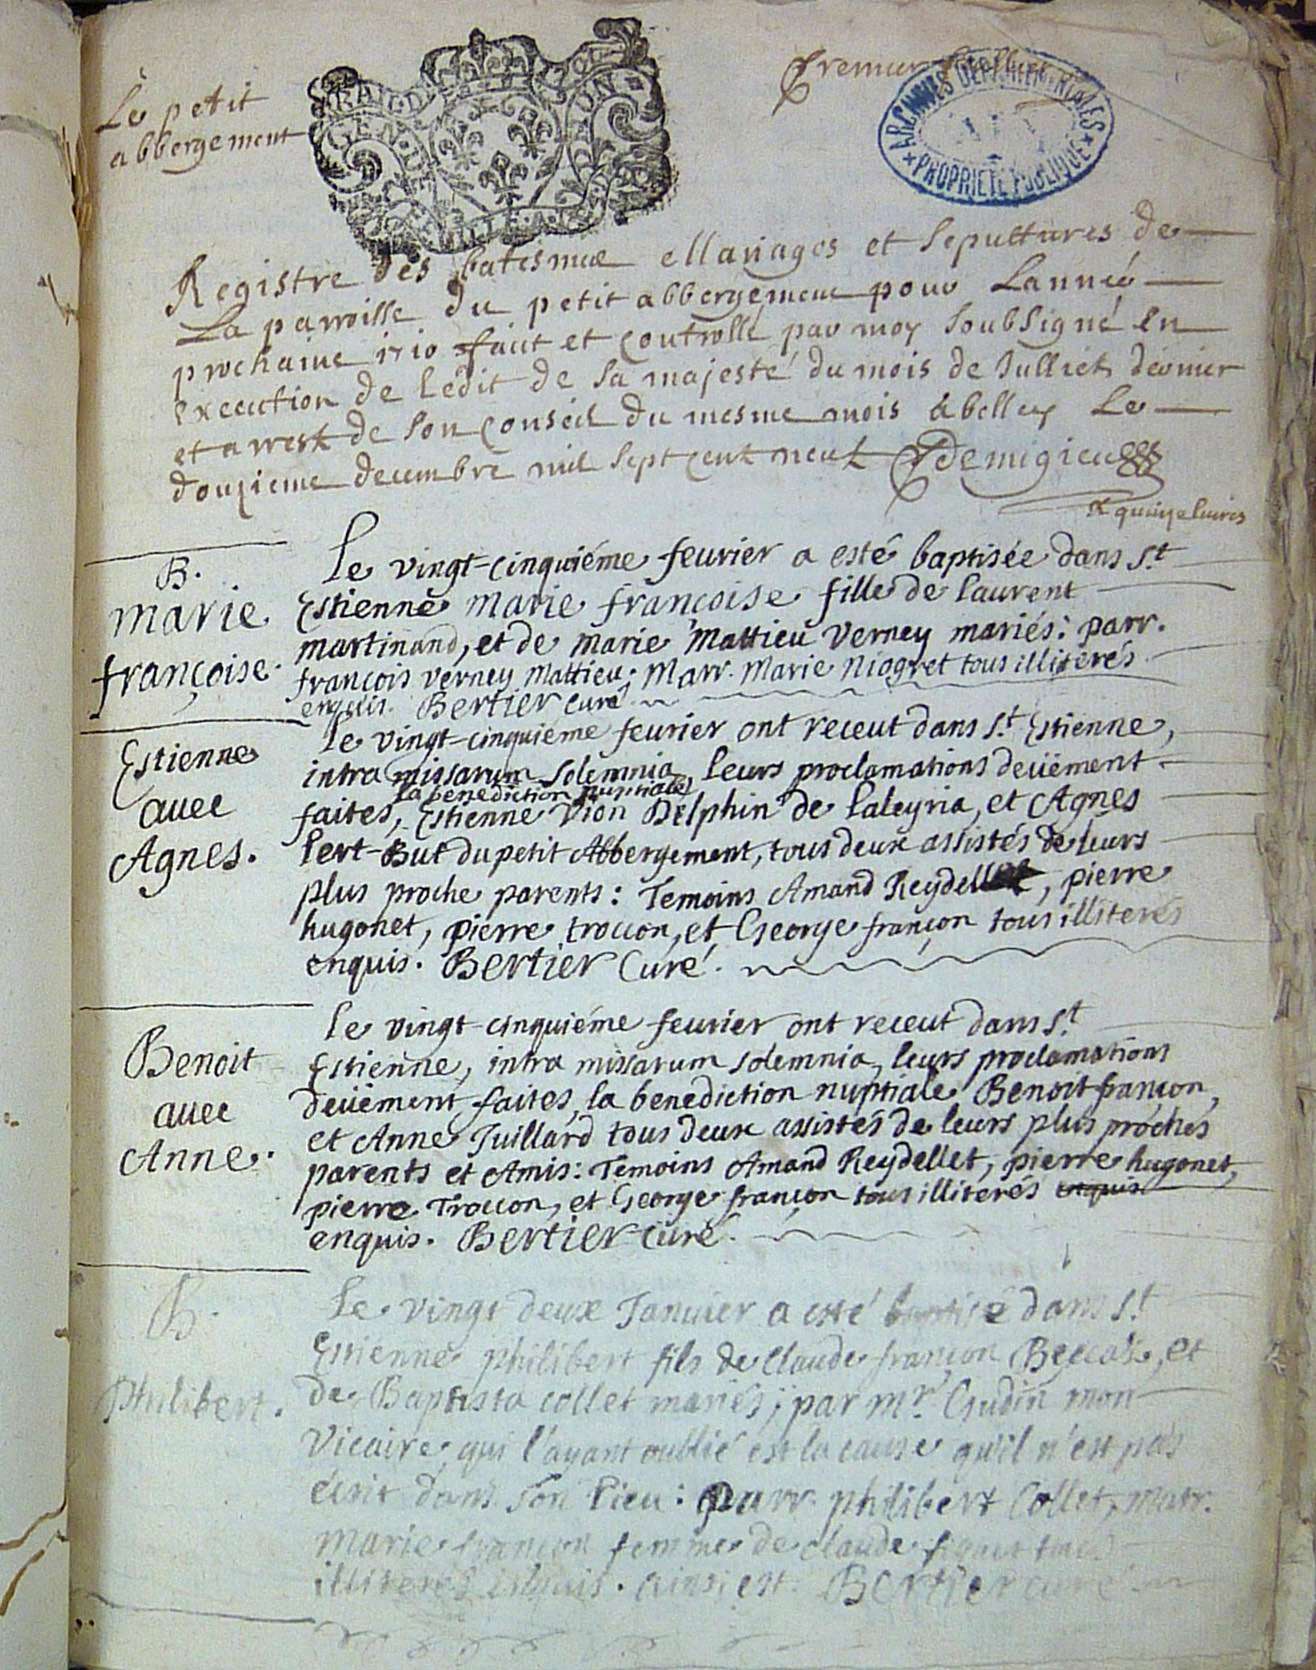 Le petit
abbergement
Premier feuillet
ARCHIVES DEPARTEMENTALES
PROPRIETE PUBLIQUE
Registre des batesmes Mariages et sepultures de
La parroisse du petit abbergement pour Lannée
prochaine 1710 faict et controllé par moy soubsigné en
execution de ledit de sa majesté du mois de Julliet dernier
et arrest de son conseil du mesme mois a belley Le
douzieme decembre mil sept cent neuf Demigieu
B.
marie
françoise.
le vingt-cinquiéme feurier a esté baptisée dans S.t
Estienne marie françoise fille de laurent
martinand, et de marie Mattieu verney mariés: parr.
françois verney Mattieu; Marr. Marie Niogret tous illiterés
enquis. Bertier curé
Estienne
auec
Agnes.
le vingt-cinquiéme feurier ont receut dans S.t Estienne,
intra missarum solemnia, leurs proclamations deüëment
la benediction nuptiale
faites, Estienne Vion Delphin de laleyria, et Agnes
pert-But du petit Abbergement, tous deux assistés de leurs
plus proche parents: Temoins Amand Reydellet, pierre
hugonet, pierre troccon, et George françon tous illiterés
enquis. Bertier Curé.
Benoit
auec
Anne.
le vingt-cinquiéme feurier ont receut dans S.t
Estienne, intra missarum solemnia, leurs proclamations
deüëment faites, la benediction nuptiale Benoit françon,
et Anne Juillard tous deux assistés de leurs plus proches
parents et Amis: Temoins Amand Reydellet, pierre hugonet,
pierre Troccon, et George françon tous illiterés enquis
enquis. Bertier Curé.
B.
Philibert.
le vingt deux Januier a esté baptisé dans S.t
Estienne philibert fils de Claude françon, et
de Baptista collet mariés; par m.r Gudin mon
Vicaire, qui l'ayant oublié est la cause qu'il n'est pas
écrit dans son lieu: parr. philibert Collet, marr.
marie françon femme de claude
illiterés enquis. ainsi est. Bertier curé